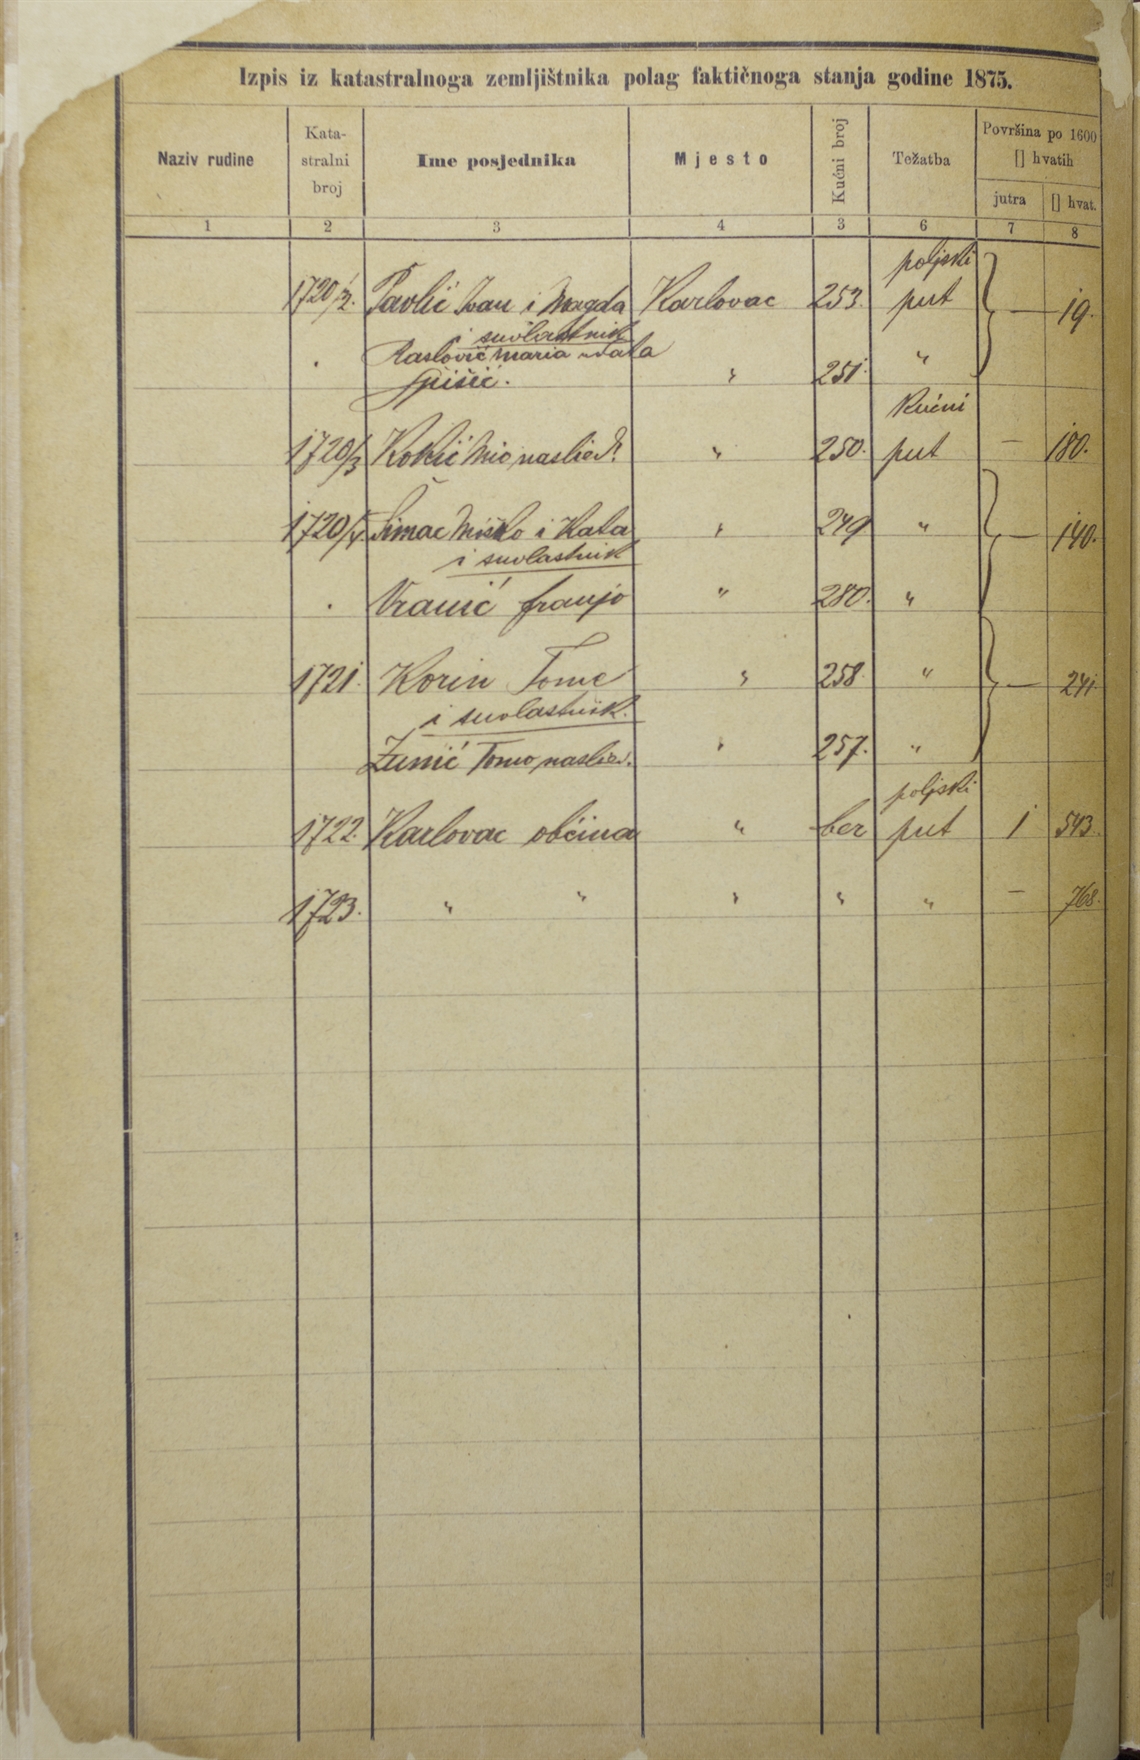 Izpis iz katastralnoga zemljištnika polag faktičnoga stanja godine 1875.
Naziv rudine Kata-stralni broj Ime posjednika Mjesto Kućni broj Težatba Površina po 1600 [] hvatih
jutra [] hvat.
1 2 3 4 3 6 7 8
poljski
1720/2. Pavlić Ivan i Magda Karlovac 253. put — 19.
i suvlastnik
Maria udata " 251. "
kućni
1720/3 Kokić Mio naslied. " 250. put — 180.
1720/4 Šimac Miško i Kata " 249 " — 140.
i suvlastnik
Vranić Franjo " 280. "
1721. Korin Tome " 258. " — 241.
i suvlastnik.
Žunić Tomo naslied. " 257. "
poljski
1722. Karlovac občina " bez put 1 543.
1723. " " " " " — 768.